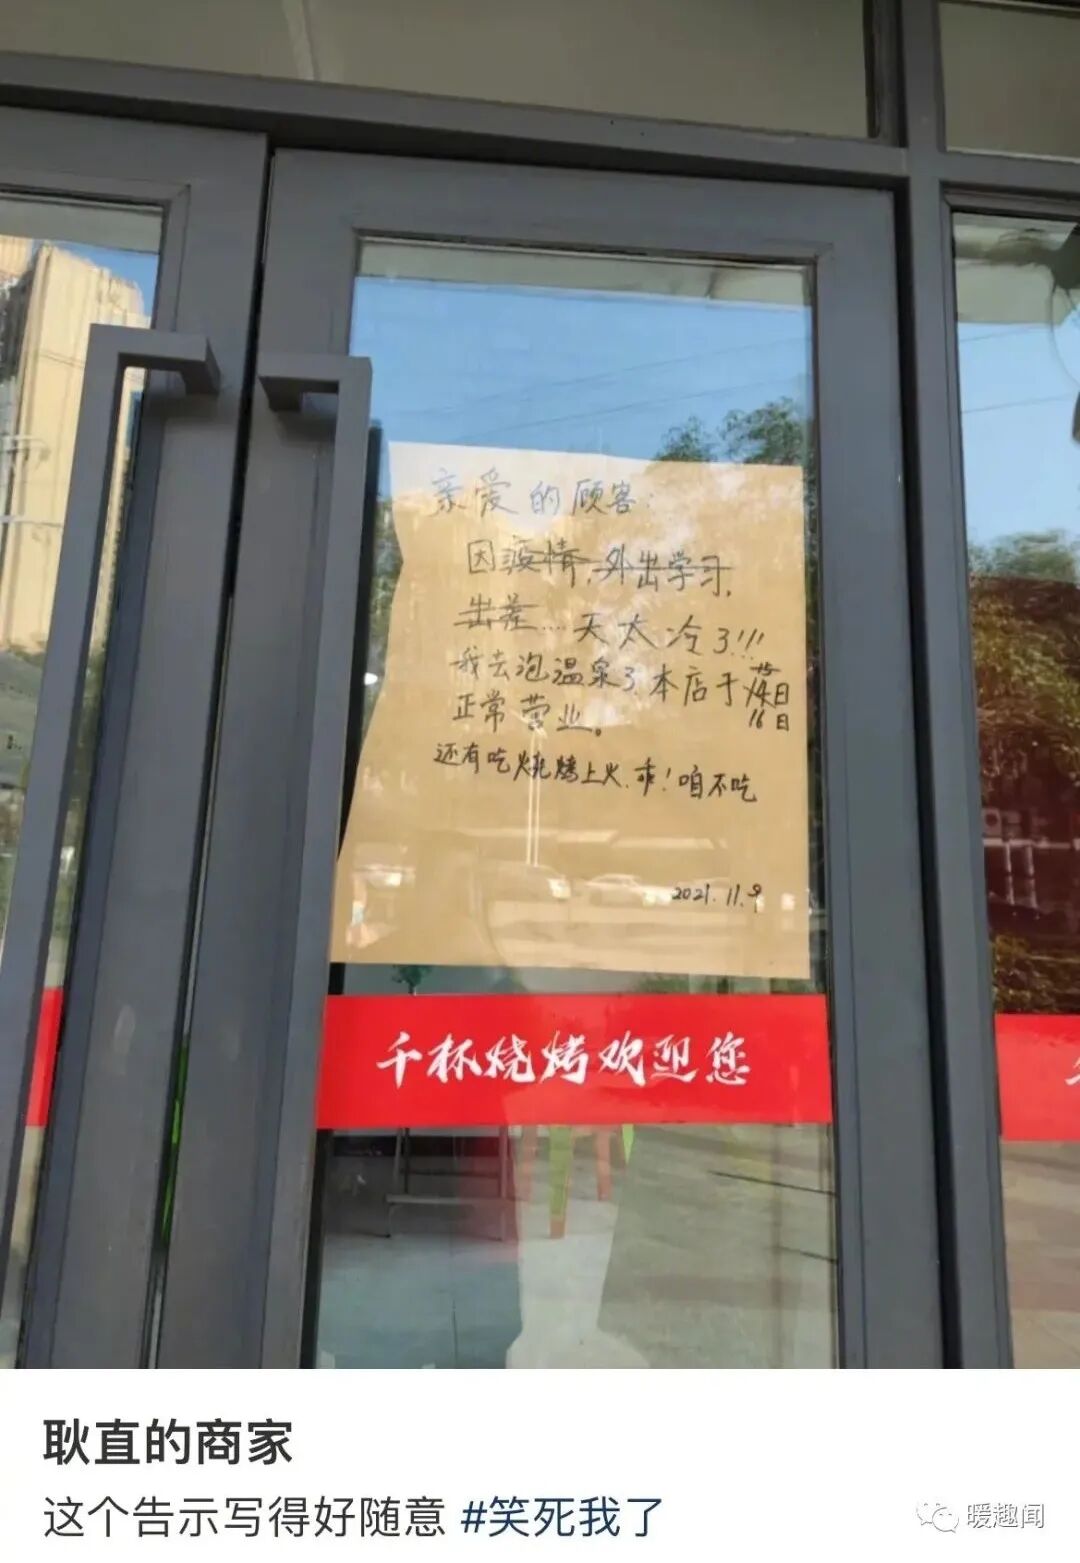 亲爱的顾客:
因疫情,外出学习,
出差....天太冷了!!!
我去泡温泉了,本店于14日
16日
正常营业。
还有吃烧烤上火.乖!咱不吃
2021.11.9
千杯烧烤欢迎您
耿直的商家
这个告示写得好随意 #笑死我了
暖趣闻